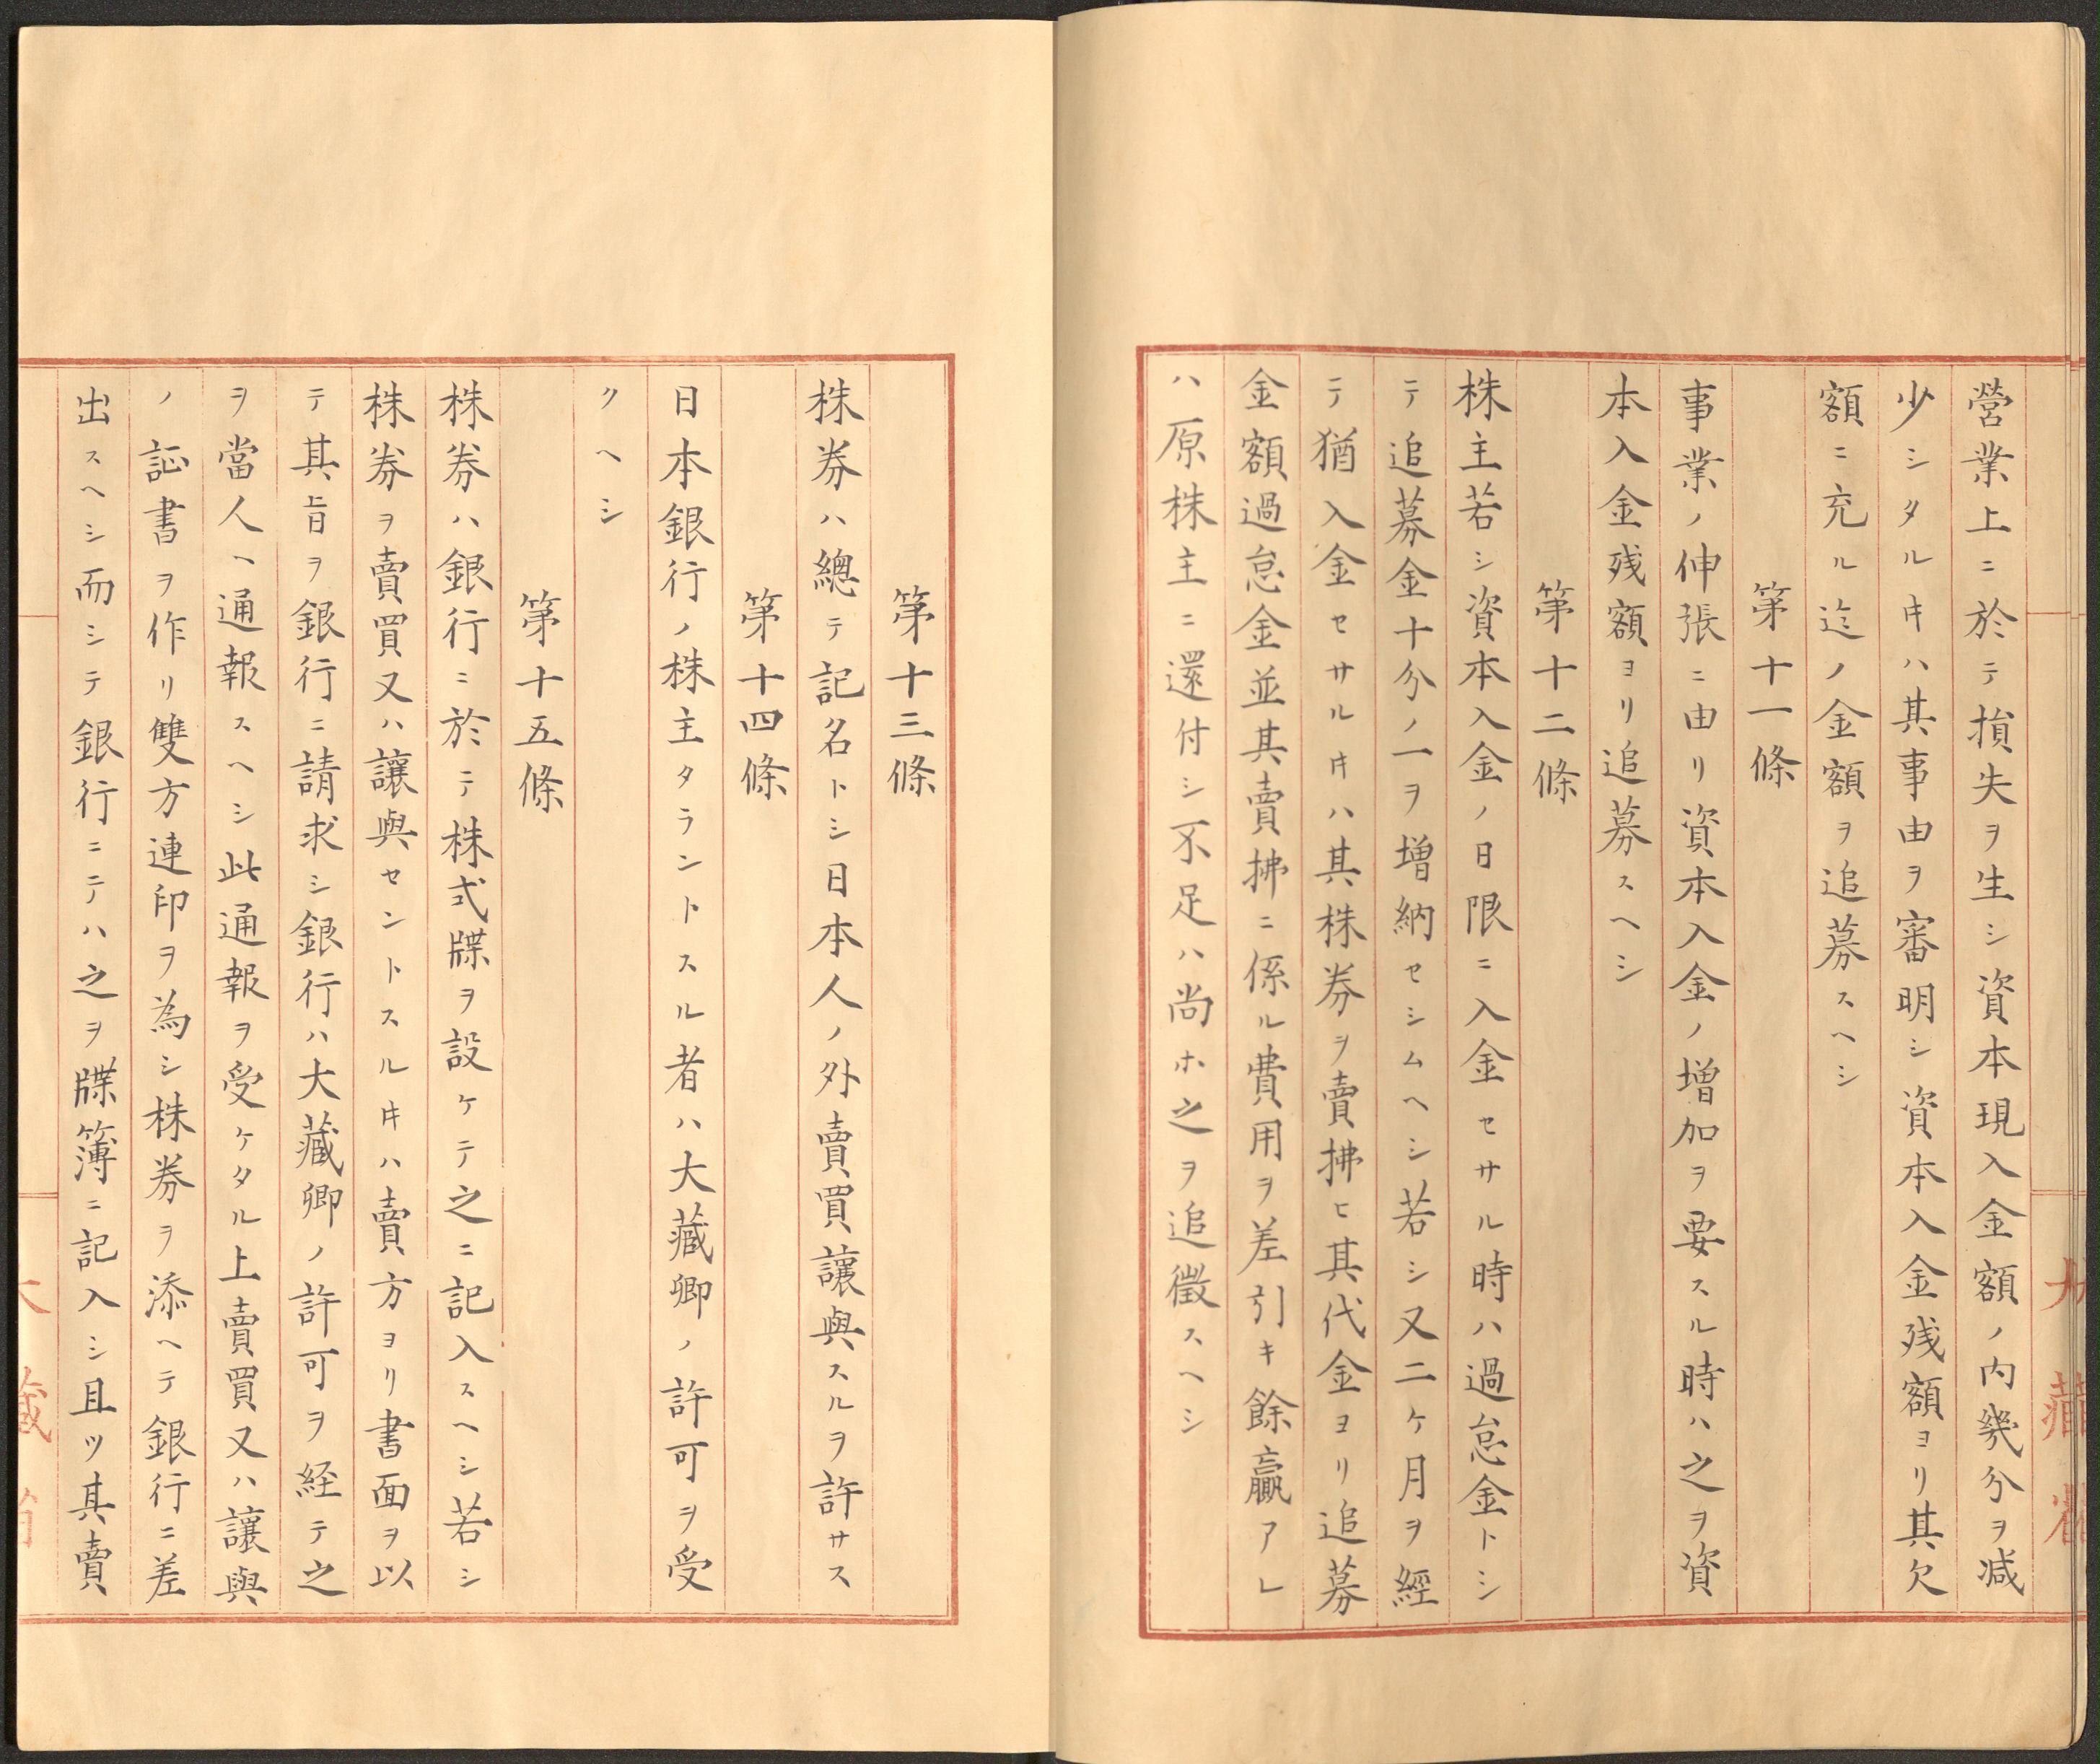 營業上ニ於テ損失ヲ生シ資本現入金額ノ内幾分ヲ減
少シタルキハ其事由ヲ審明シ資本入金残額ヨリ其欠
額ニ充ル迄ノ金額ヲ追募スヘシ
第十一條
事業ノ伸張ニ由リ資本入金ノ増加ヲ要スル時ハ之ヲ資
本入金残額ヨリ追募スヘシ
第十二條
株主若シ資本入金ノ日限ニ入金セサル時ハ過怠金トシ
テ追募金十分ノ一ヲ増納セシムヘシ若シ又二ケ月ヲ經
テ猶入金セサルキハ其株券ヲ賣拂ヒ其代金ヨリ追募
金額過怠金並其賣拂ニ係ル費用ヲ差引キ餘贏アレ
ハ原株主ニ還付シ不足ハ尚ホ之ヲ追徴スヘシ
第十三條
株券ハ總テ記名トシ日本人ノ外賣買讓與スルヲ許サス
第十四條
日本銀行ノ株主タラントスル者ハ大藏卿ノ許可ヲ受
クヘシ
第十五條
株券ハ銀行ニ於テ株式牒ヲ設ケテ之ニ記入スヘシ若シ
株券ヲ賣買又ハ讓與セントスルキハ賣方ヨリ書面ヲ以
テ其旨ヲ銀行ニ請求シ銀行ハ大藏卿ノ許可ヲ経テ之
ヲ當人ヘ通報スヘシ此通報ヲ受ケタル上賣買又ハ讓與
ノ証書ヲ作リ雙方連印ヲ為シ株券ヲ添ヘテ銀行ニ差
出スヘシ而シテ銀行ニテハ之ヲ牒簿ニ記入シ且ツ其賣